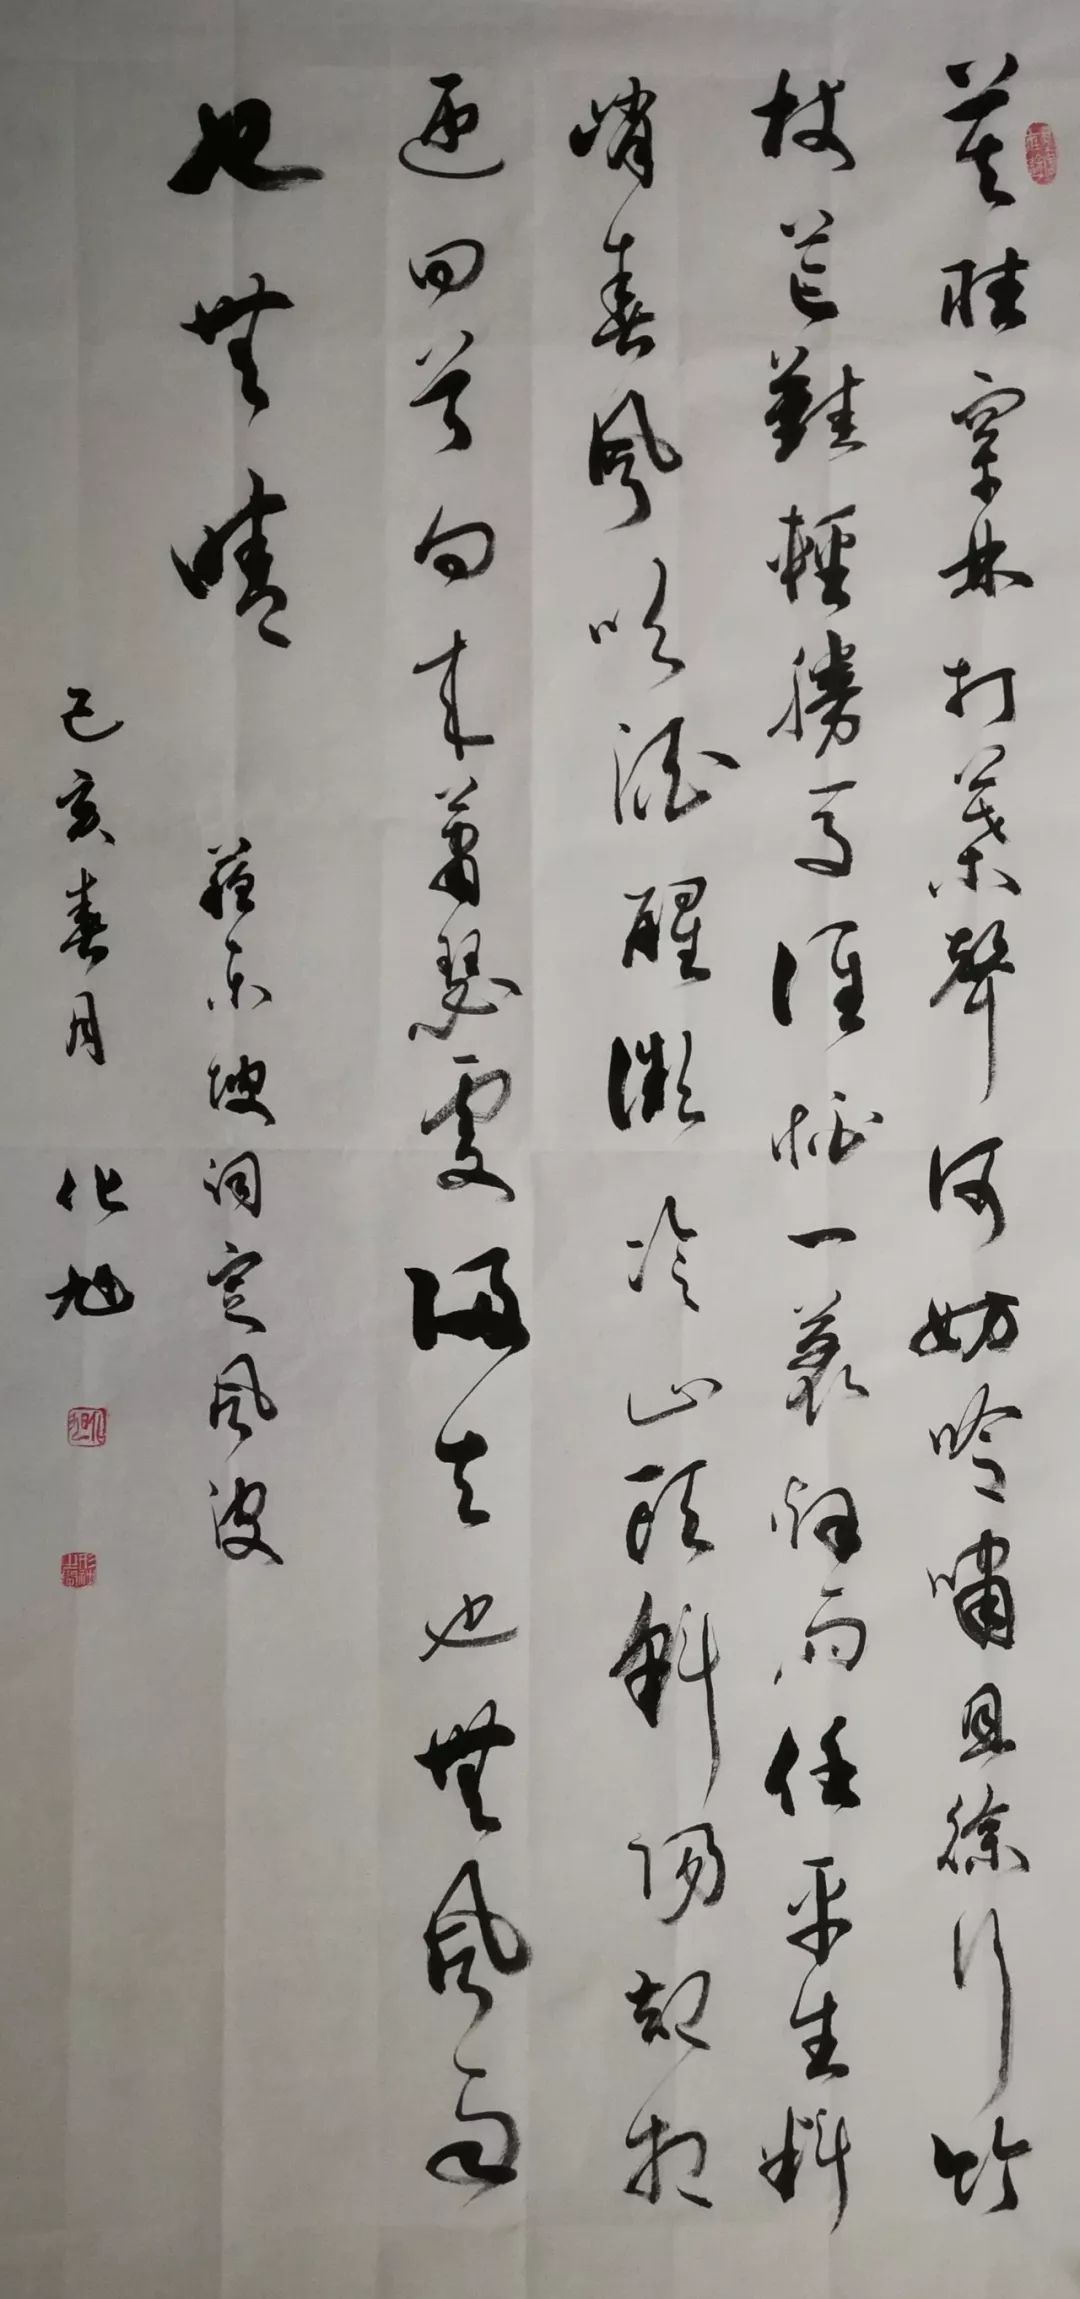 莫聽穿林打葉聲何妨吟嘯且徐行竹
杖芒鞋輕勝馬誰怕一蓑烟雨任平生料
峭春風吹酒醒微冷山頭斜陽却相
迎回首向來蕭瑟處歸去也無風雨
也無晴
蘇東坡詞定風波
己亥春月 化旭